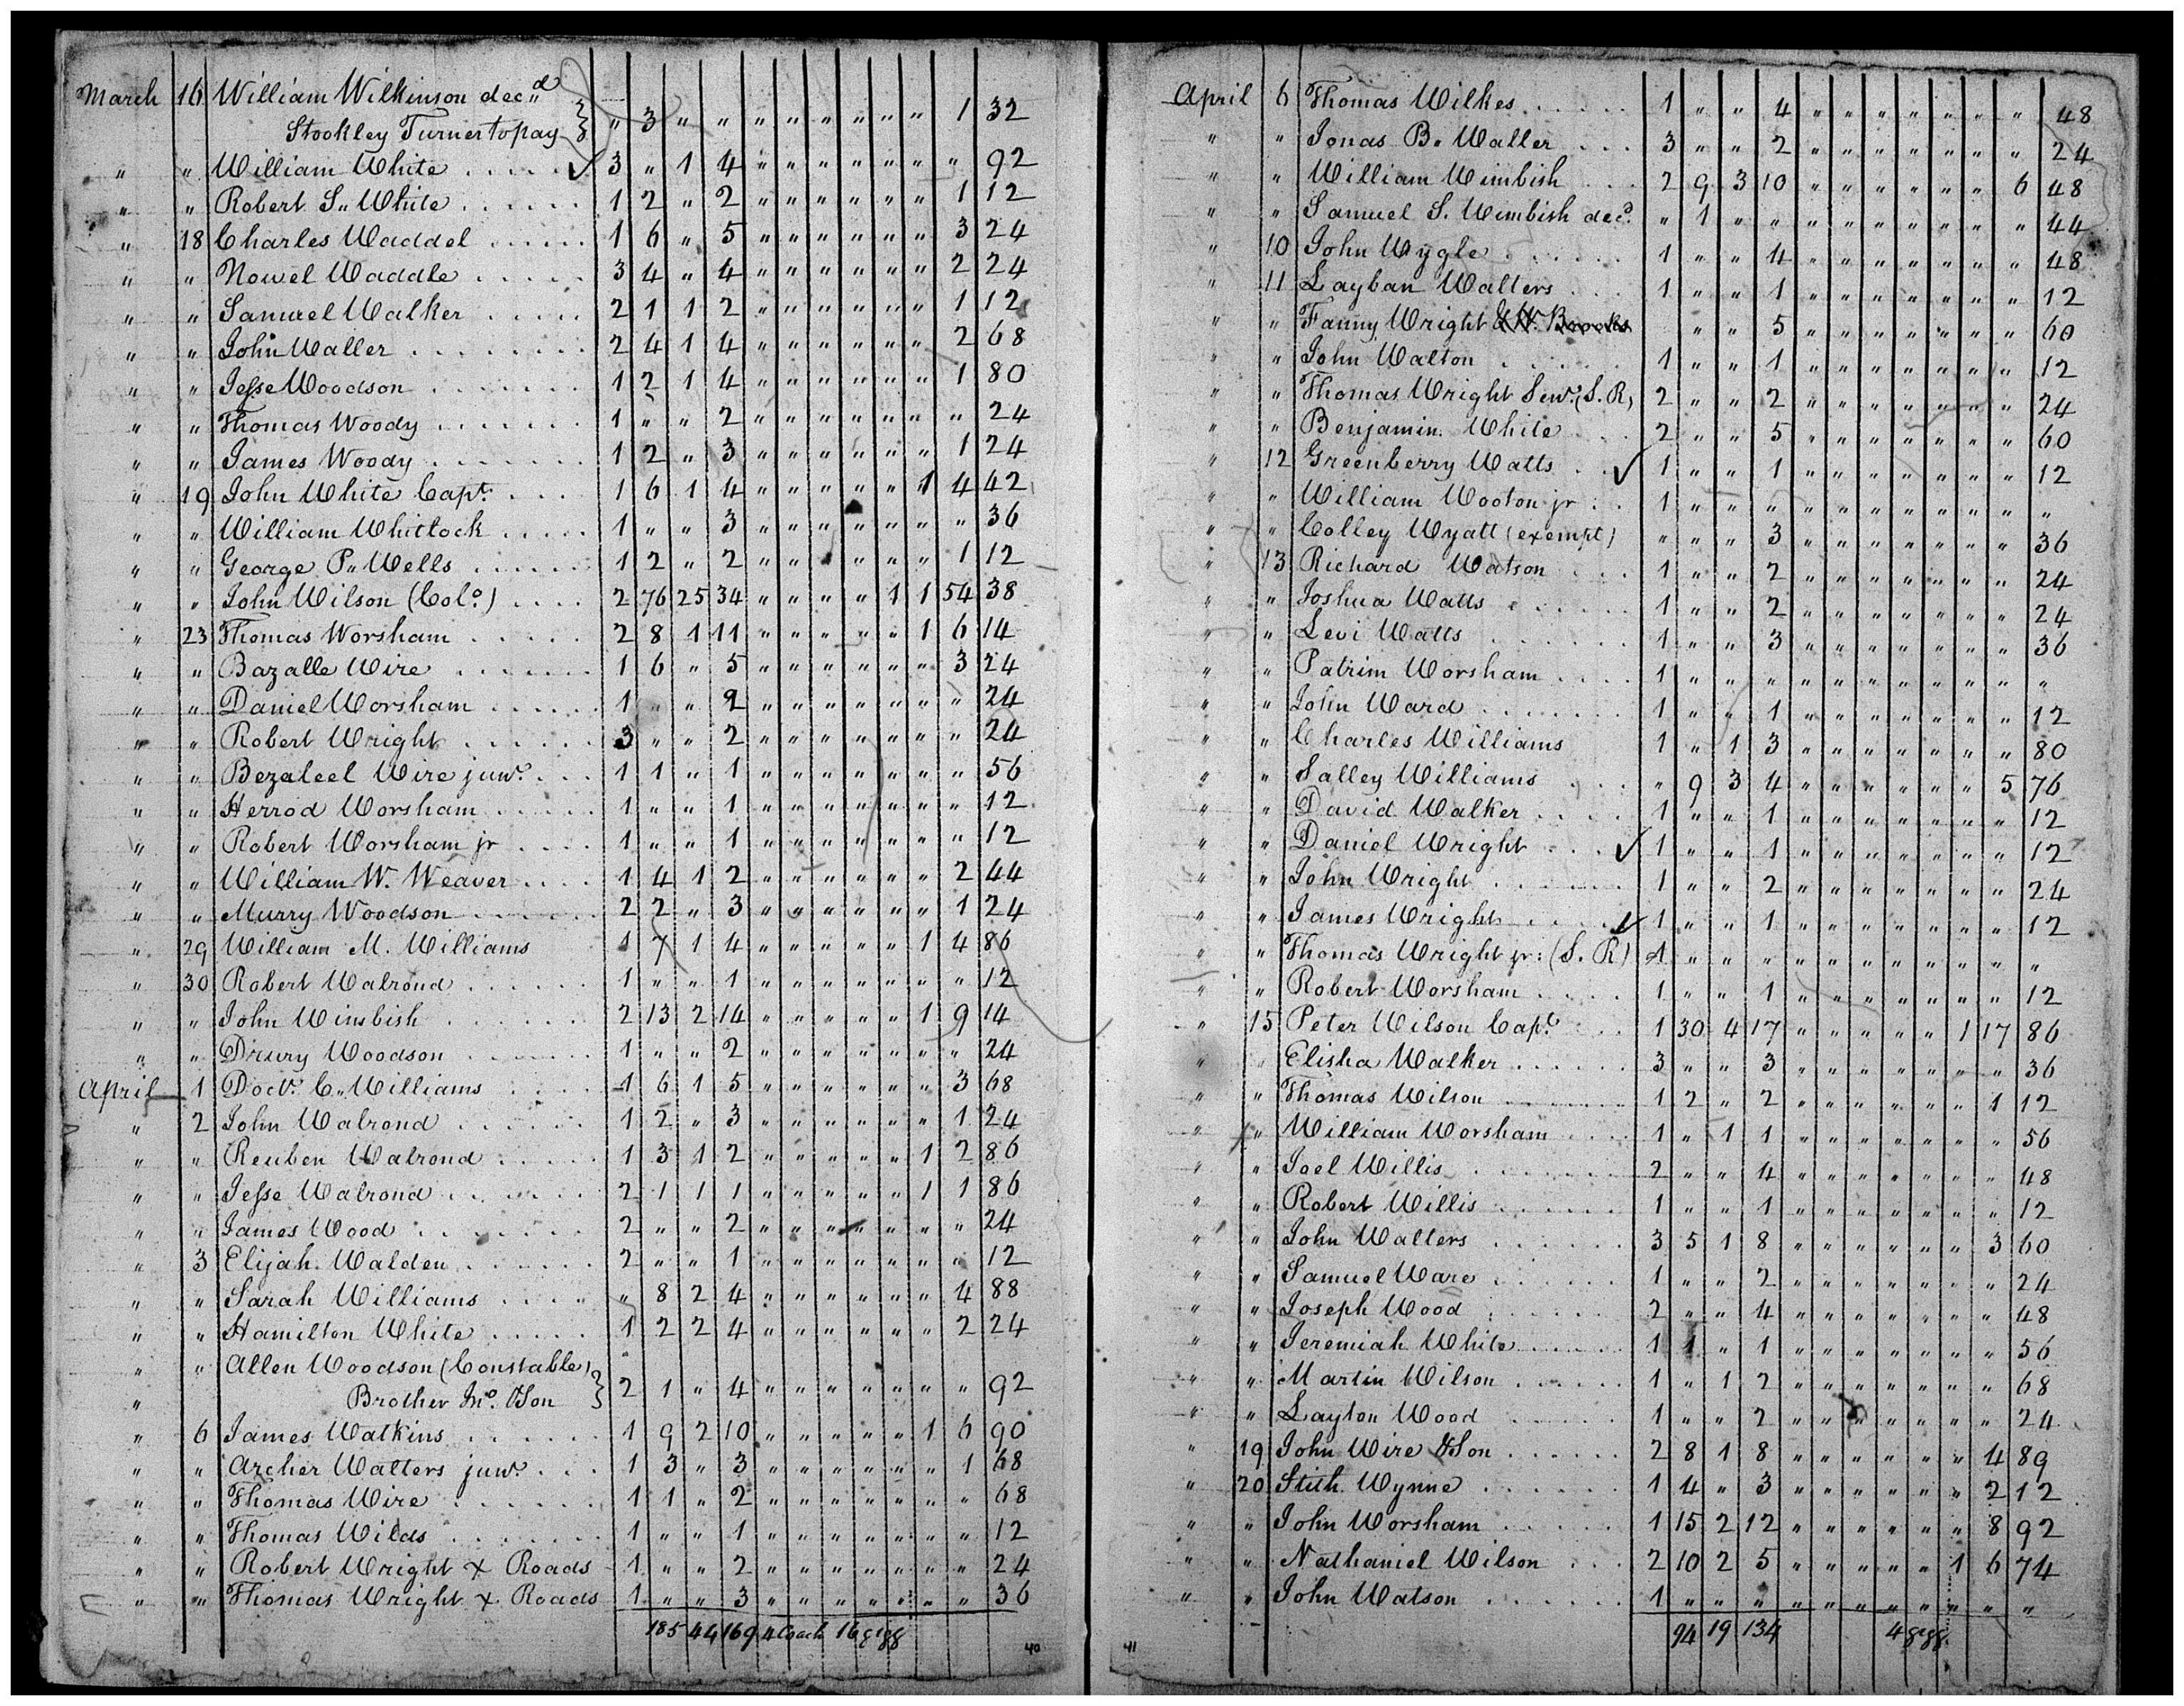 March 16 William Wilkinson dec.d
Stookley Turner to pay } " 3 " " " " " " " " 1 32
" " William White ..... ✓ 3 " 1 4 " " " " " " " 92
" " Robert S. White ...... 1 2 " 2 " " " " " " 1 12
" 18 Charles Waddel ..... 1 6 " 5 " " " " " " 3 24
" " Nowel Waddle ..... 3 4 " 4 " " " " " " 2 24
" " Samuel Walker ..... 2 1 1 2 " " " " " " 1 12
" " John Waller ........ 2 4 1 4 " " " " " " 2 68
" " Jesse Woodson ....... 1 2 1 4 " " " " " " 1 80
" " Thomas Woody ....... 1 " " 2 " " " " " " " 24
" " James Woody ....... 1 2 " 3 " " " " " " 1 24
" 19 John White Capt. .... 1 6 1 4 " " " " " 1 4 42
" " William Whitlock ..... 1 " " 3 " " " " " " " 36
" " George P. Wells ...... 1 2 " 2 " " " " " " 1 12
" " John Wilson (Colo.) .... 2 76 25 34 " " " " 1 1 54 38
" 23 Thomas Worsham ..... 2 8 1 11 " " " " " 1 6 14
" " Bazalle Wire ....... 1 6 " 5 " " " " " " 3 24
" " Daniel Worsham ...... 1 " " 2 " " " " " " " 24
" " Robert Wright ...... 3 " " 2 " " " " " " " 24
" " Bezaleel Wire junr. ... 1 1 " 1 " " " " " " " 56
" " Herrod Worsham ..... 1 " " 1 " " " " " " " 12
" " Robert Worsham jr .... 1 " " 1 " " " " " " " 12
" " William W. Weaver .... 1 4 1 2 " " " " " " 2 44
" " Murry Woodson ...... 2 2 " 3 " " " " " " 1 24
" 29 William M. Williams 1 7 1 4 " " " " " 1 4 86
" 30 Robert Walrond ...... 1 " " 1 " " " " " " " 12
" " John Wimbish ...... 2 13 2 14 " " " " " 1 9 14
" " Drury Woodson ...... 1 " " 2 " " " " " " " 24
April 1 Doctr. C. Williams .... 1 6 1 5 " " " " " " 3 68
" 2 John Walrond ...... 1 2 " 3 " " " " " " 1 24
" " Reuben Walrond ..... 1 3 1 2 " " " " " 1 2 86
" " Jesse Walrond ...... 2 1 1 1 " " " " " 1 1 86
" " James Wood ....... 2 " " 2 " " " " " " " 24
" 3 Elijah Walden ...... 2 " " 1 " " " " " " " 12
" " Sarah Williams .... " 8 2 4 " " " " " " 4 88
" " Hamilton White ..... 1 2 2 4 " " " " " " 2 24
" " Allen Woodson (Constable)
" Brother Jno. & Son } 2 1 " 4 " " " " " " " 92
" 6 James Watkins ...... 1 9 2 10 " " " " " 1 6 90
" " Archer Walters junr. ... 1 3 " 3 " " " " " " 1 68
" " Thomas Wire ...... 1 1 " 2 " " " " " " " 68
" " Thomas Wilds ....... 1 " " 1 " " " " " " " 12
" " Robert Wright x Roads 1 " " 2 " " " " " " " 24
" " Thomas Wright x Roads 1 " " 3 " " " " " " " 36
185 44 169 4 Coach 16 gigg
40
April 6 Thomas Wilkes ...... 1 " " 4 " " " " " " " 48
" " Jonas B. Waller ... 3 " " 2 " " " " " " " 24
" " William Wimbish ... 2 9 3 10 " " " " " " 6 48
" " Samuel S. Wimbish decd. " 1 " " " " " " " " " 44
" 10 John Wygle ...... 1 " " 4 " " " " " " " 48
" 11 Layban Walters ... 1 " " 1 " " " " " " " 12
" " Fanny Wright & W. Brooks " " 5 " " " " " " " 60
" " John Walton ..... 1 " " 1 " " " " " " " 12
" " Thomas Wright Senr. (S. R) 2 " " 2 " " " " " " " 24
" " Benjamin White .... 2 " " 5 " " " " " " " 60
" 12 Greenberry Watts .. ✓ 1 " " 1 " " " " " " " 12
" " William Wooton jr .. 1 " " " " " " " " " " "
" " Colley Wyatt (exempt) " " " 3 " " " " " " " 36
" 13 Richard Watson ... 1 " " 2 " " " " " " " 24
" " Joshua Watts ...... 1 " " 2 " " " " " " " 24
" " Levi Watts ....... 1 " " 3 " " " " " " " 36
" " Patrim Worsham .... 1 " " " " " " " " " " "
" " John Ward ....... 1 " " 1 " " " " " " " 12
" " Charles Williams 1 " 1 3 " " " " " " " 80
" " Salley Williams ... " 9 3 4 " " " " " " 5 76
" " David Walker .... 1 " " 1 " " " " " " " 12
" " Daniel Wright ... ✓ 1 " " 1 " " " " " " " 12
" " John Wright ...... 1 " " 2 " " " " " " " 24
" " James Wright .... ✓ 1 " " 1 " " " " " " " 12
" " Thomas Wright jr: (S. R) 1 " " " " " " " " " " "
" " Robert Worsham .... 1 " " 1 " " " " " " " 12
" 15 Peter Wilson Capt. ... 1 30 4 17 " " " " " 1 17 86
" " Elisha Walker ...... 3 " " 3 " " " " " " " 36
" " Thomas Wilson ...... 1 2 " 2 " " " " " " 1 12
" " William Worsham .... 1 " 1 1 " " " " " " " 56
" " Joel Willis ....... 2 " " 4 " " " " " " " 48
" " Robert Willis ...... 1 " " 1 " " " " " " " 12
" " John Walters ...... 3 5 1 8 " " " " " " 3 60
" " Samuel Ware ...... 1 " " 2 " " " " " " " 24
" " Joseph Wood ...... 2 " " 4 " " " " " " " 48
" " Jeremiah White ..... 1 1 " 1 " " " " " " " 56
" " Martin Wilson ..... 1 " 1 2 " " " " " " " 68
" " Layton Wood ..... 1 " " 2 " " " " " " " 24
" 19 John Wire & Son ...... 2 8 1 8 " " " " " " 4 89
" 20 Stith Wynne ...... 1 4 " 3 " " " " " " 2 12
" " John Worsham ...... 1 15 2 12 " " " " " " 8 92
" " Nathaniel Wilson ... 2 10 2 5 " " " " " 1 6 74
" " John Watson ...... 1 " " " " " " " " " " "
94 19 134 4 gigg
41